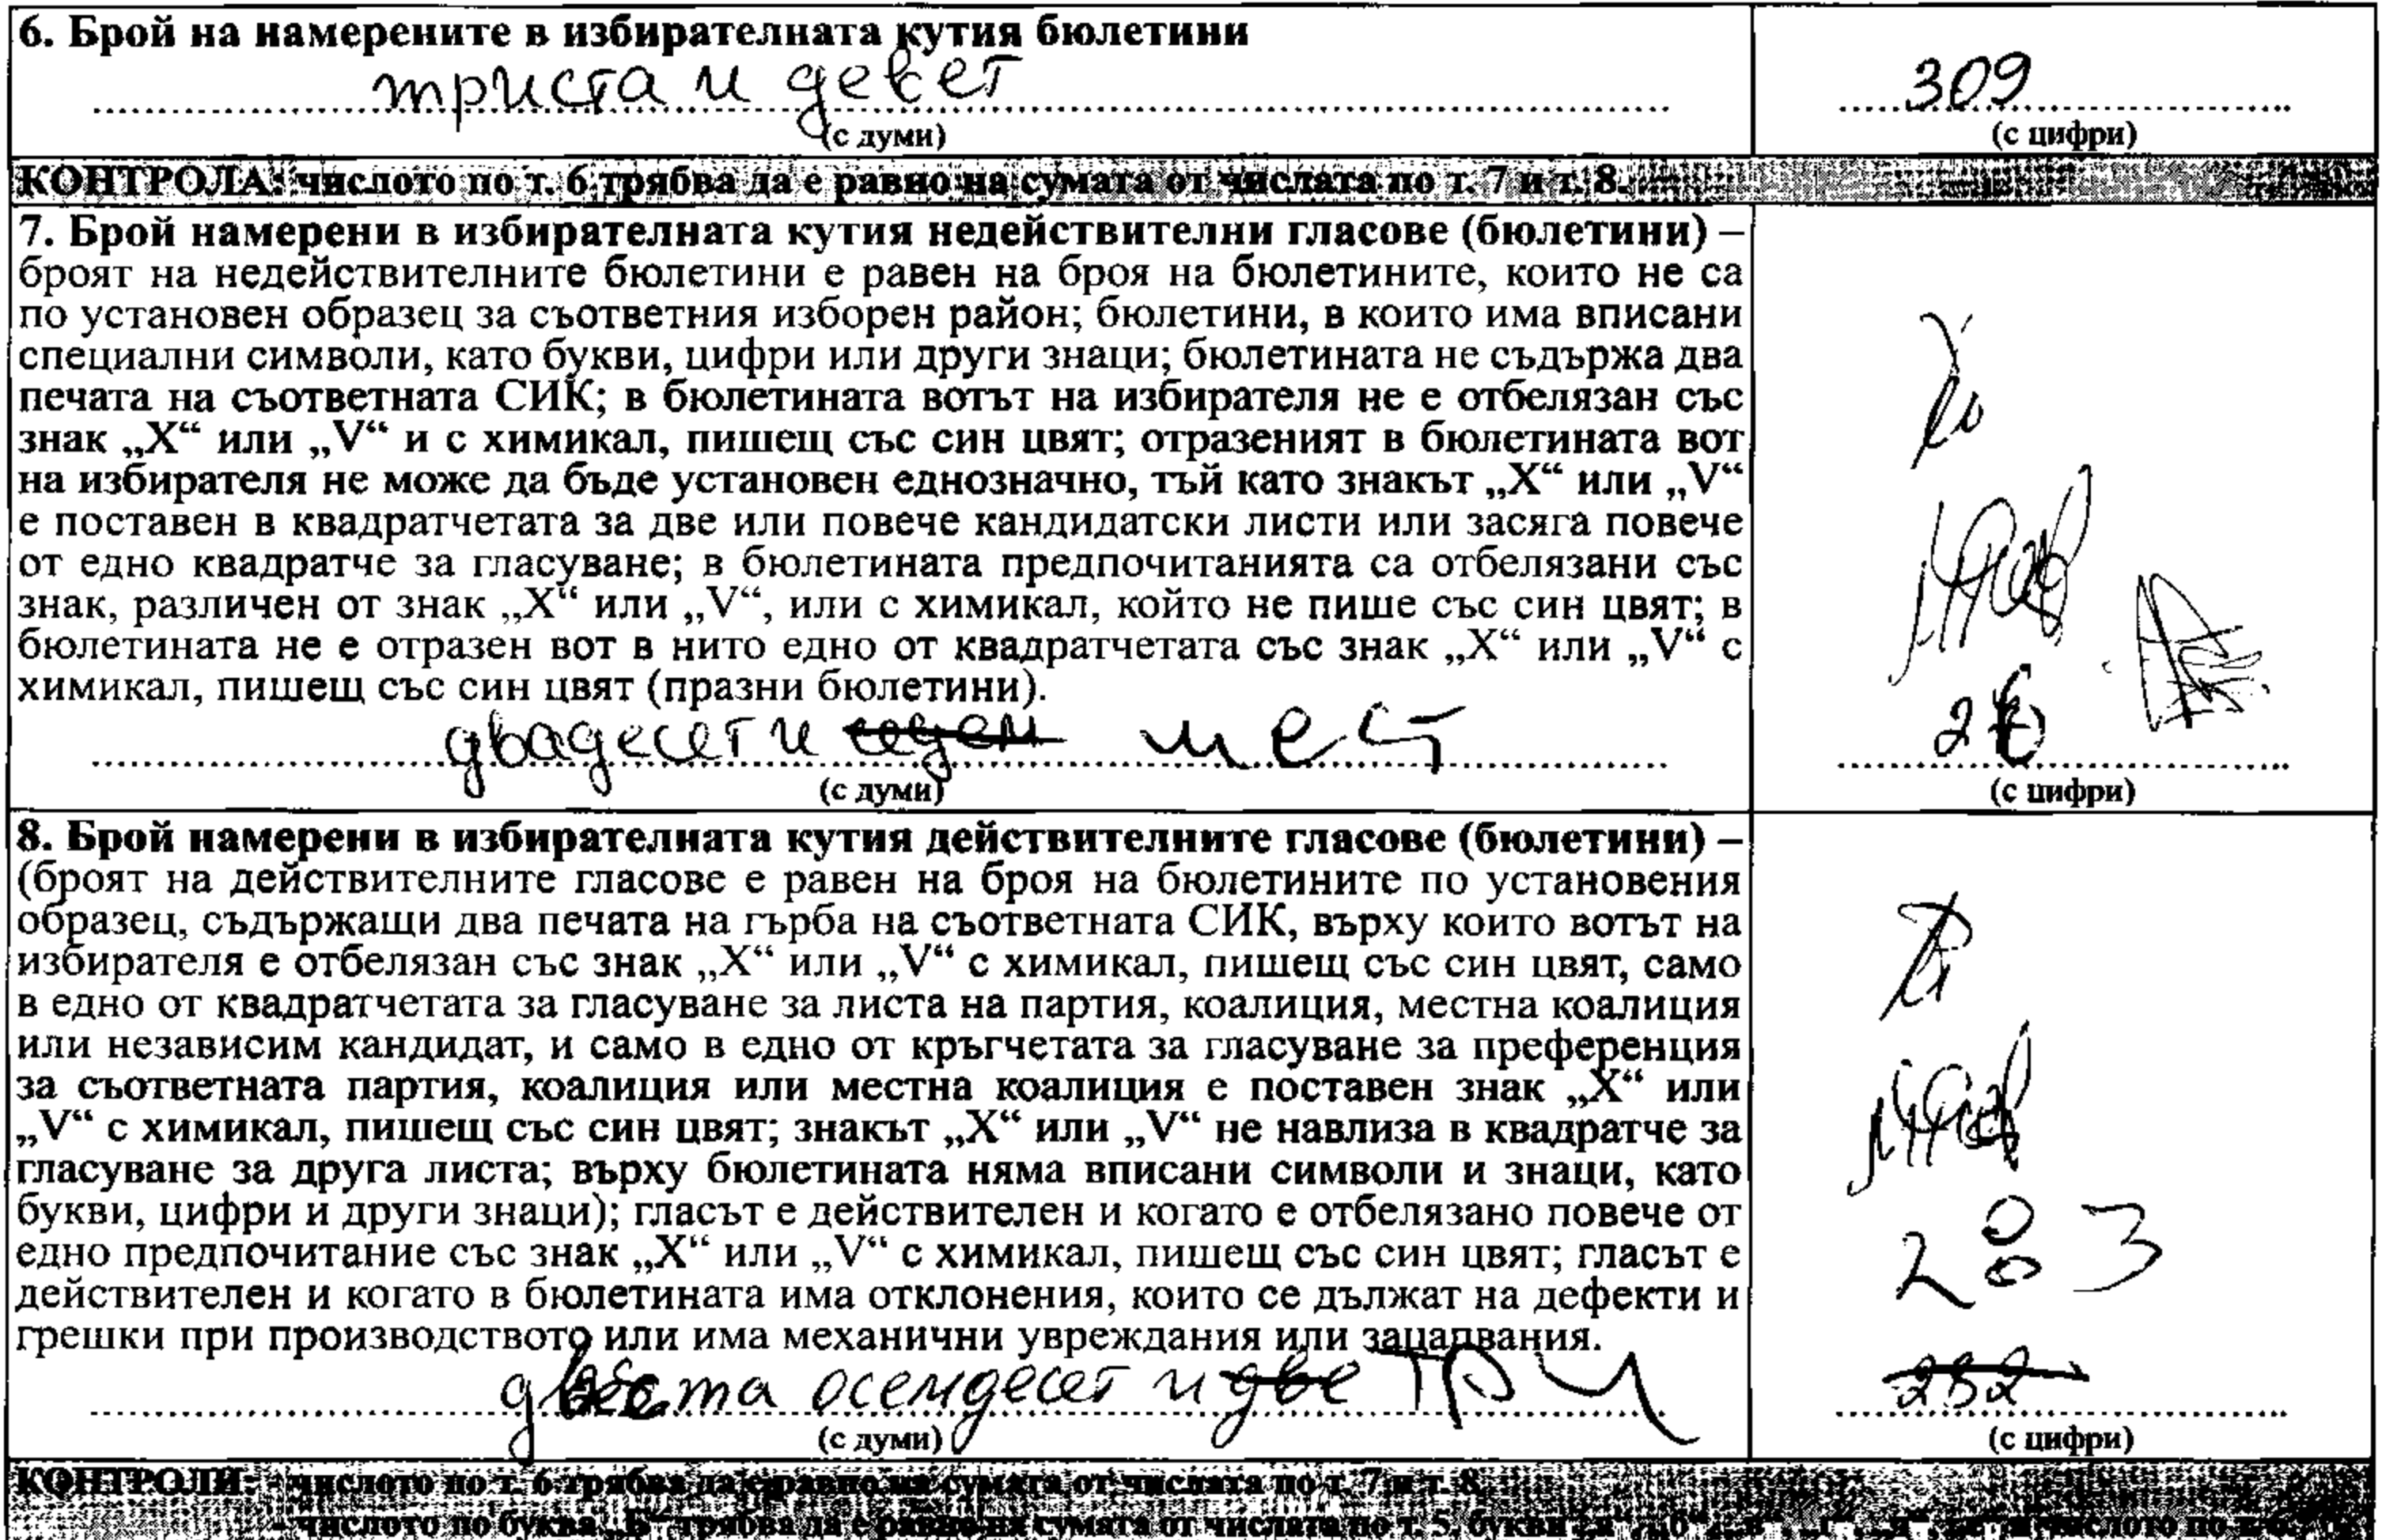 6. Брой на намерените в избирателната кутия бюлетини
триста и девет
309
(с думи)
(с цифри)
КОНТРОЛА: числото по т. 6 трябва да е равно на сумата от числата по т. 7 и т. 8.
7. Брой намерени в избирателната кутия недействителни гласове (бюлетини) –
броят на недействителните бюлетини е равен на броя на бюлетините, които не са
по установен образец за съответния изборен район; бюлетини, в които има вписани
специални символи, като букви, цифри или други знаци; бюлетината не съдържа два
печата на съответната СИК; в бюлетината вотът на избирателя не е отбелязан със
знак „X“ или „V“ и с химикал, пишещ със син цвят; отразеният в бюлетината вот
на избирателя не може да бъде установен еднозначно, тъй като знакът „X“ или „V“
е поставен в квадратчетата за две или повече кандидатски листи или засяга повече
от едно квадратче за гласуване; в бюлетината предпочитанията са отбелязани със
знак, различен от знак „X“ или „V“, или с химикал, който не пише със син цвят; в
бюлетината не е отразен вот в нито едно от квадратчетата със знак „X“ или „V“ с
химикал, пишещ със син цвят (празни бюлетини).
двадесет и седем шест
26
(с думи)
(с цифри)
8. Брой намерени в избирателната кутия действителните гласове (бюлетини) –
(броят на действителните гласове е равен на броя на бюлетините по установения
образец, съдържащи два печата на гърба на съответната СИК, върху които вотът на
избирателя е отбелязан със знак „X“ или „V“ с химикал, пишещ със син цвят, само
в едно от квадратчетата за гласуване за листа на партия, коалиция, местна коалиция
или независим кандидат, и само в едно от кръгчетата за гласуване за преференция
за съответната партия, коалиция или местна коалиция е поставен знак „X“ или
„V“ с химикал, пишещ със син цвят; знакът „X“ или „V“ не навлиза в квадратче за
гласуване за друга листа; върху бюлетината няма вписани символи и знаци, като
букви, цифри и други знаци); гласът е действителен и когато е отбелязано повече от
едно предпочитание със знак „X“ или „V“ с химикал, пишещ със син цвят; гласът е
действителен и когато в бюлетината има отклонения, които се дължат на дефекти и
грешки при производството или има механични увреждания или зацапвания.
283
двеста осемдесет и две три
282
(с думи)
(с цифри)
КОНТРОЛИ: - числото по т. 6 трябва да е равно на сумата от числата по т. 7 и т. 8.
- числото по буква „Б“ трябва да е равно на сумата от числата по т. 5, букви